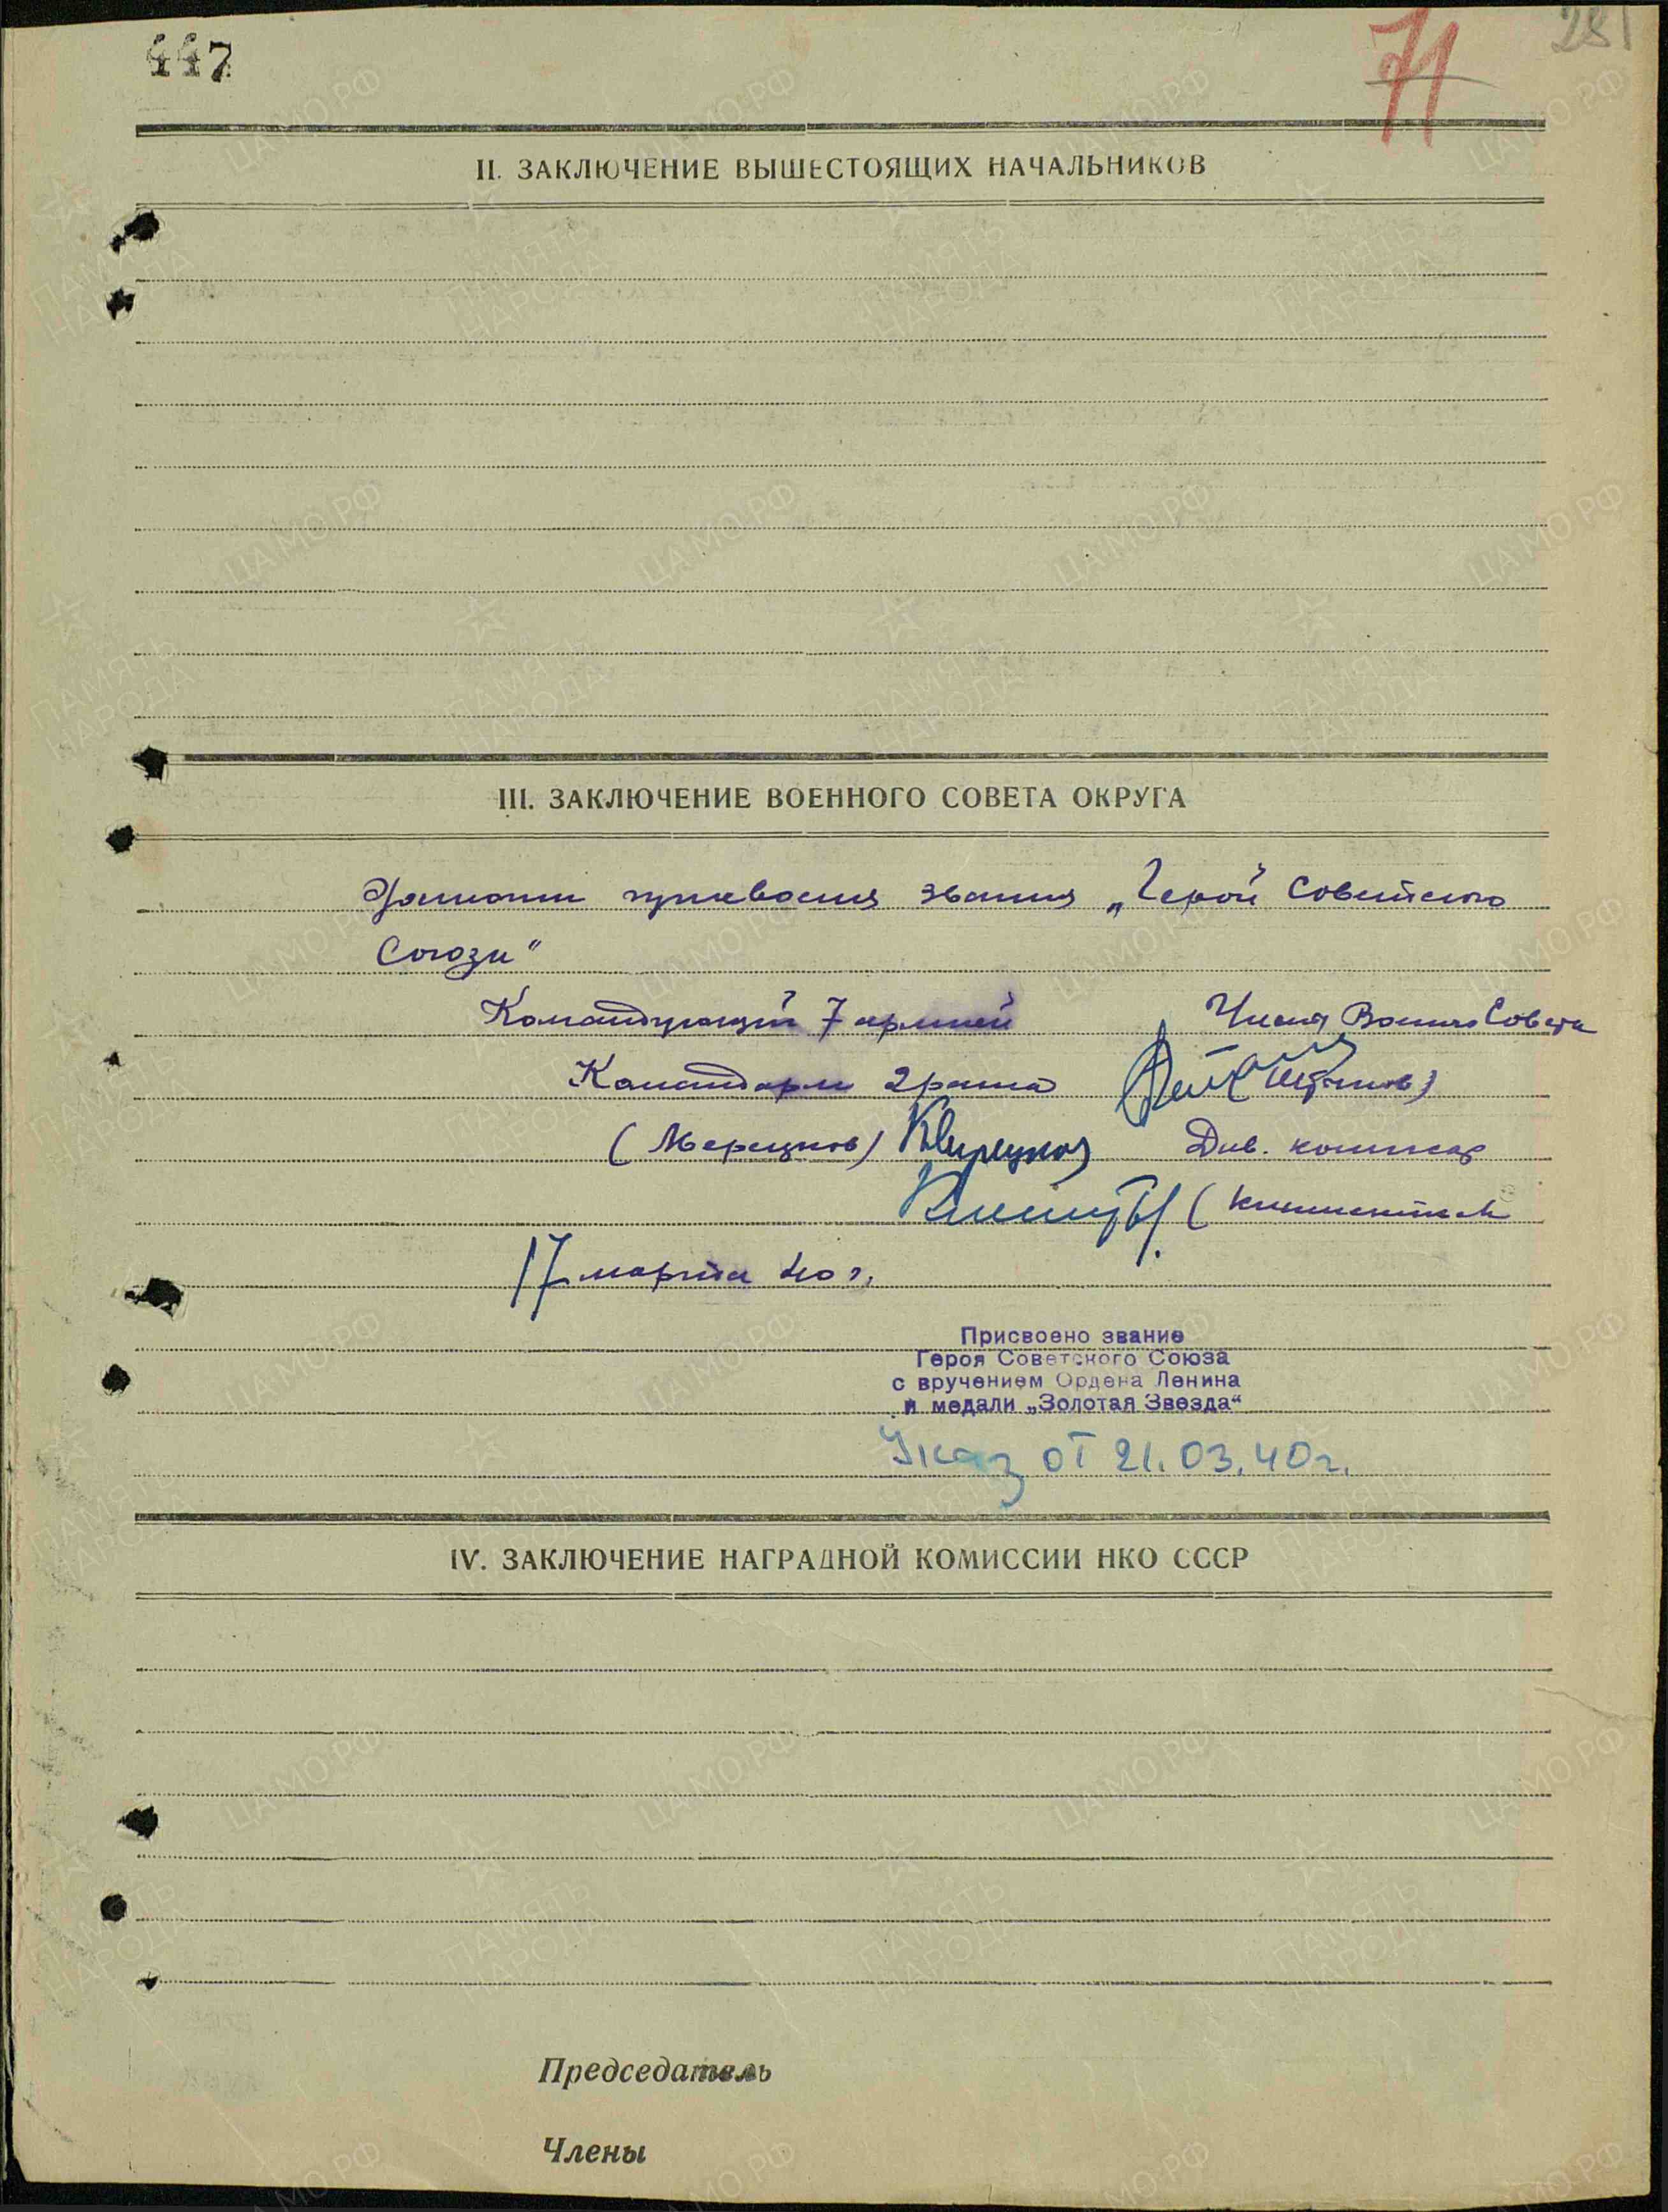 447
71
281
II. ЗАКЛЮЧЕНИЕ ВЫШЕСТОЯЩИХ НАЧАЛЬНИКОВ
III. ЗАКЛЮЧЕНИЕ ВОЕННОГО СОВЕТА ОКРУГА
Достоин присвоения звания „Герой Советского
Союза"
Командующий 7 армией
Члены Военного Совета
Командарм 2 ранга
(Мерецков)
Див. комиссар
17 марта 40 г.
Присвоено звание
Героя Советского Союза
с вручением Ордена Ленина
и медали „Золотая Звезда"
Указ от 21.03.40г.
IV. ЗАКЛЮЧЕНИЕ НАГРАДНОЙ КОМИССИИ НКО СССР
Председатель
Члены
ПАМЯТЬ НАРОДА
ЦАМО.РФ